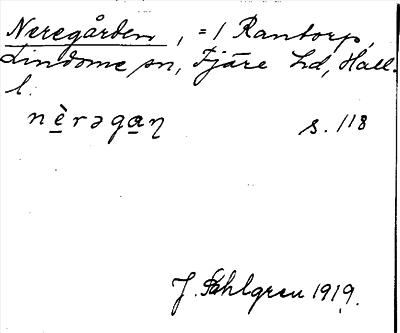 Neregården, =1 Rantorp,
Lindome sn, Fjäre hd, Hall.
l.
nèrəgaɳ s. 118
J. Sahlgren 1919.